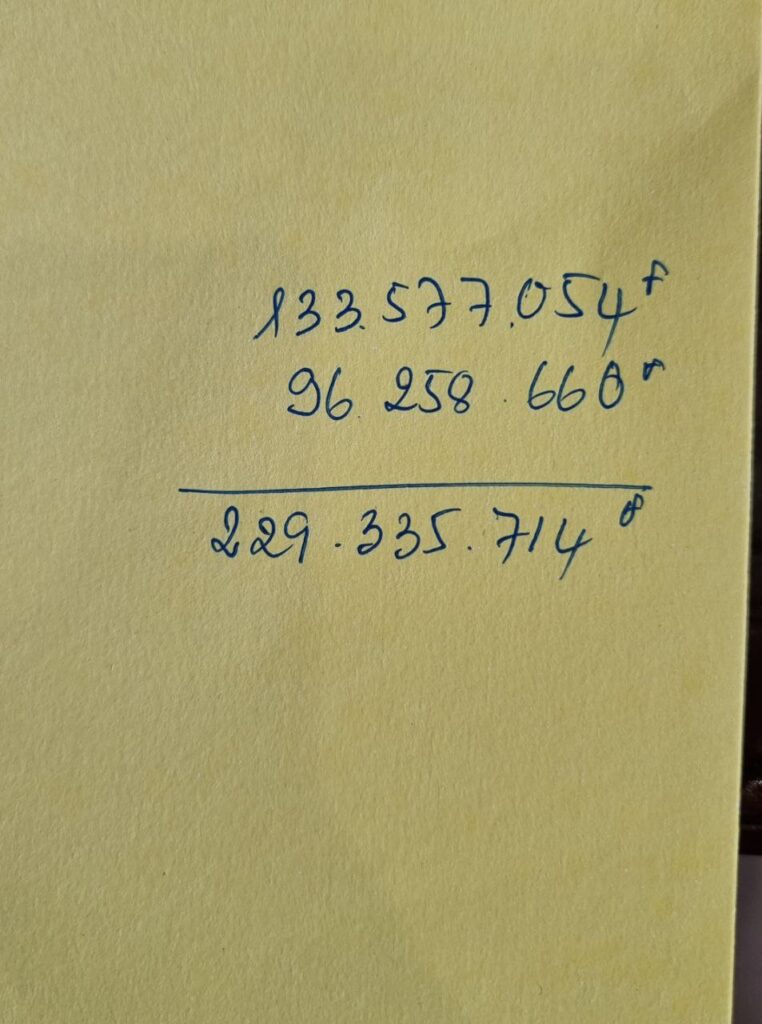 133.577.054
96.258.660
229.335.714